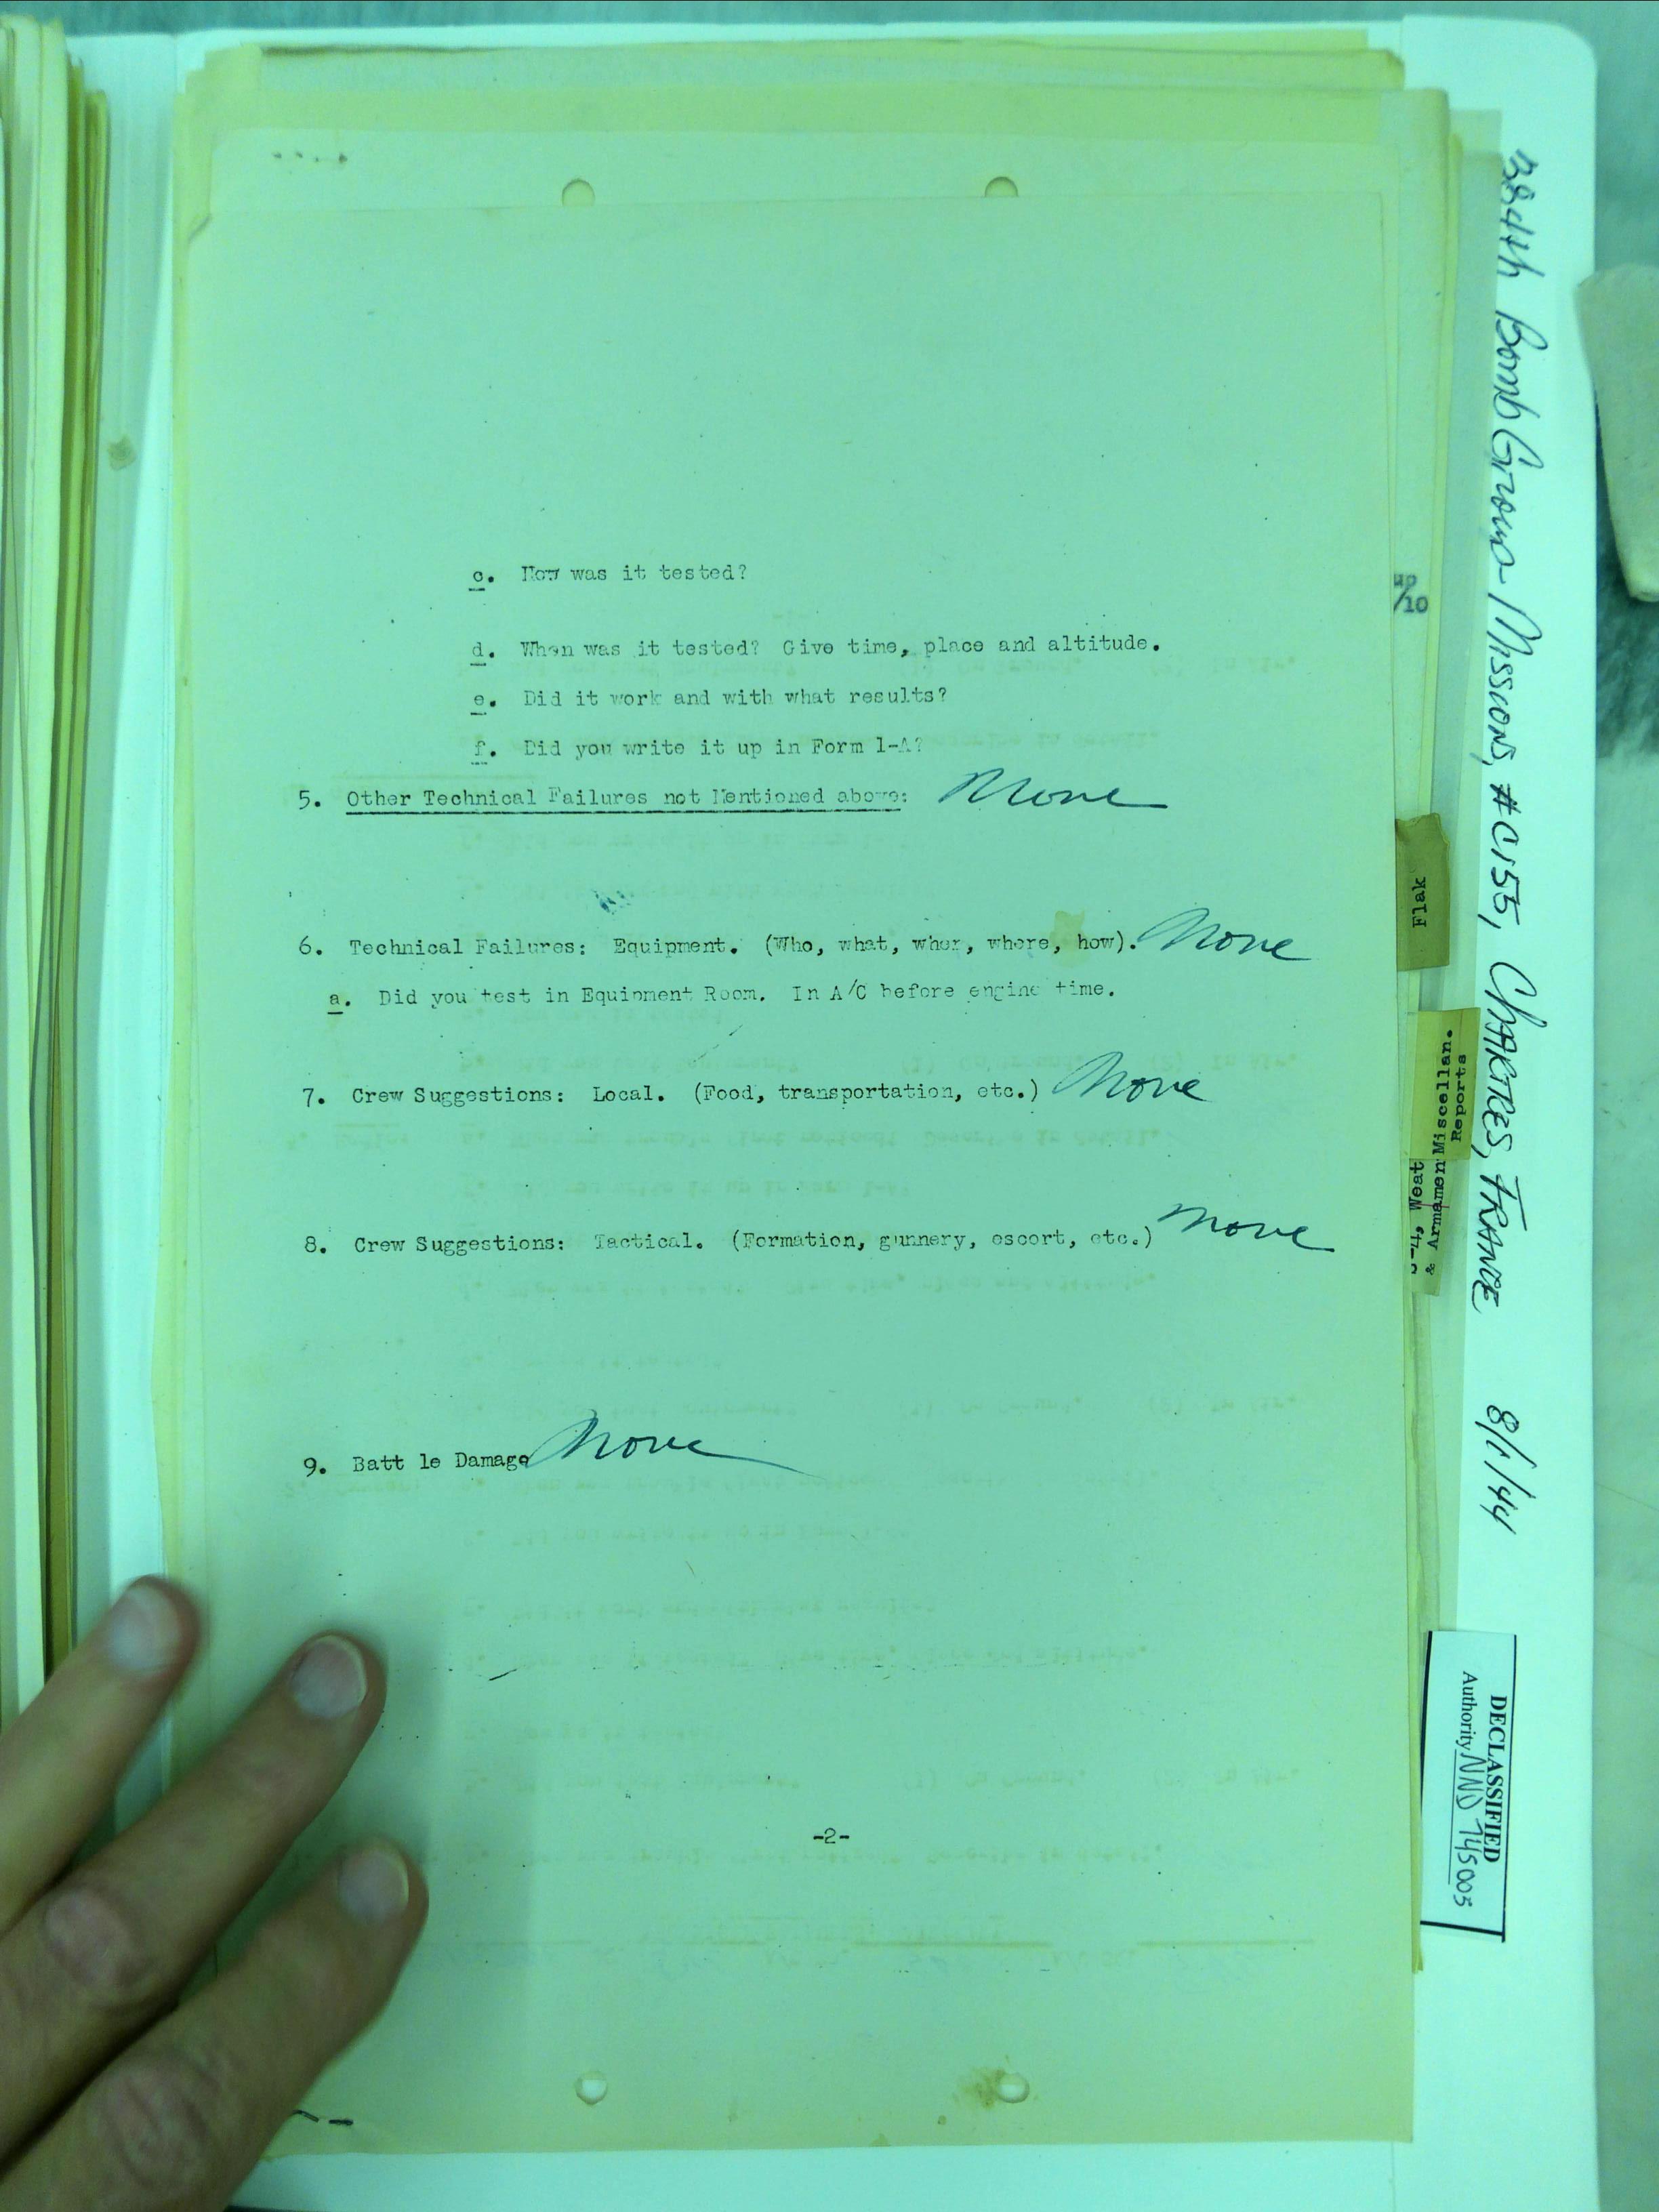 c. How was it tested?
d. When was it tested? Give time, place and altitude.
e. Did it work and with what results?
f. Did you write it up in Form 1-A?
5. Other Technical Failures not Mentioned above: None
6. Technical Failures: Equipment. (Who, what, when, where, how). None
a. Did you test in Equipment Room. In A/C before engine time.
7. Crew Suggestions: Local. (Food, transportation, etc.) None
8. Crew Suggestions: Tactical. (Formation, gunnery, escort, etc.) None
9. Batt le Damage None
-2-
/10
Flak
Miscellan.
Reports
S-4, Weat
& Armamen
384th Bomb Group Mission, #C155, CHARTRES, FRANCE 8/1/44
DECLASSIFIED
Authority NND 745003